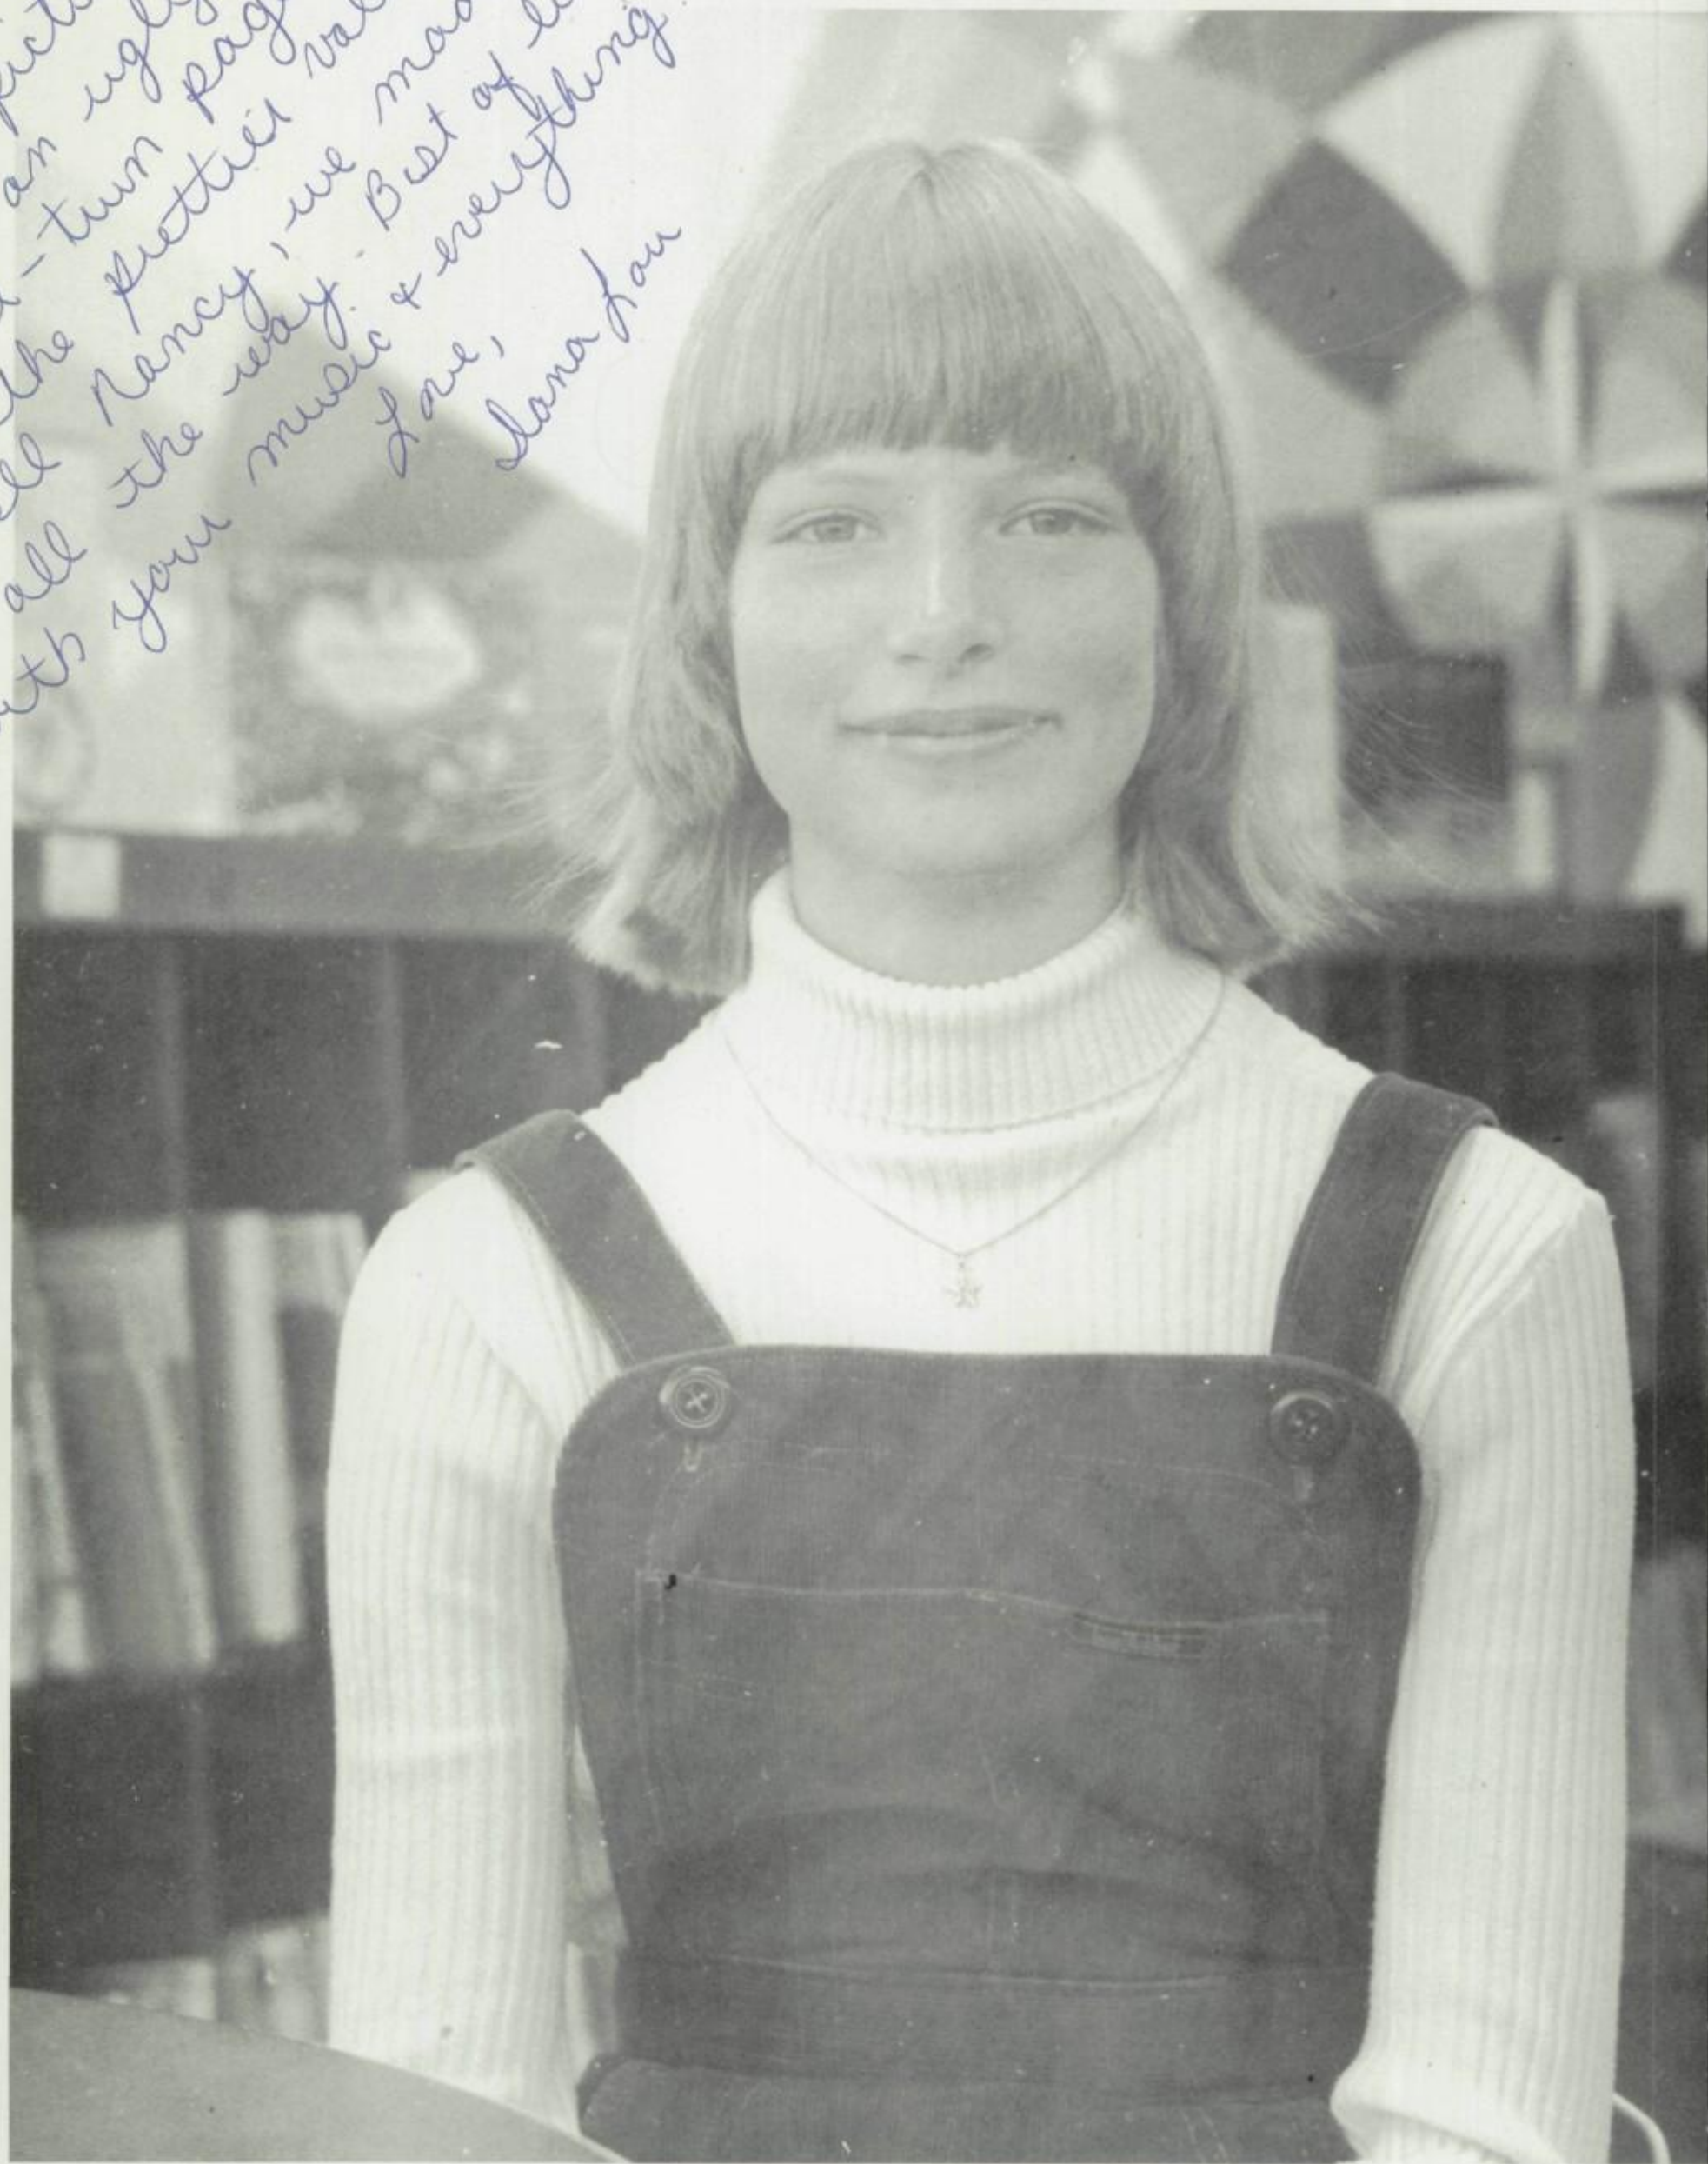 an ugly
-turn pag
the prettier val
ell Nancy, we mad
all the way. Best of lu
with your music & everything.
Love,
Dana Lou